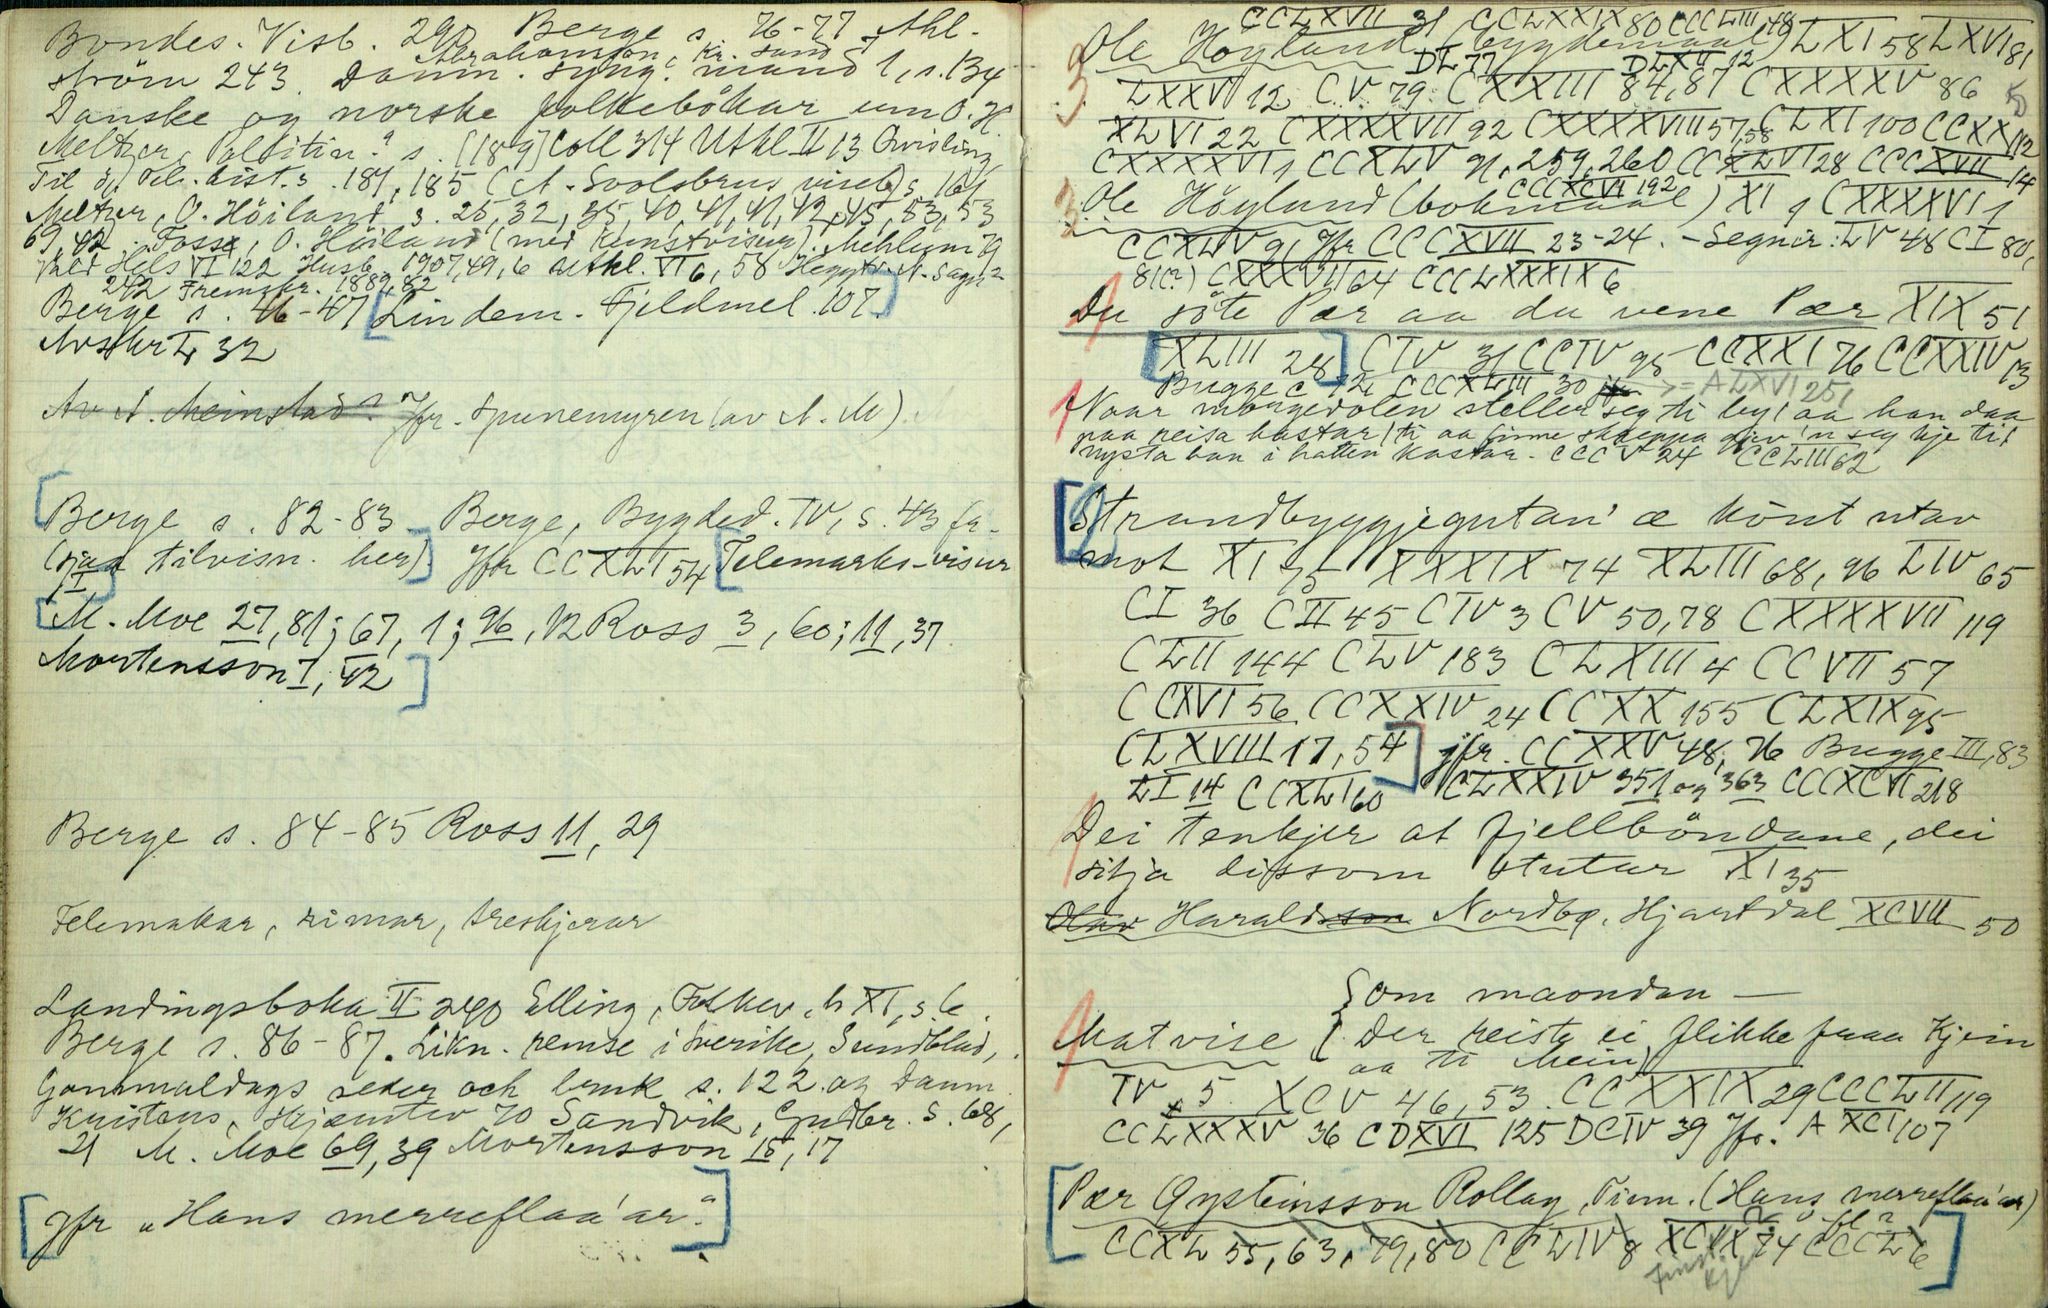 Bondes. Visb. 290 Berge s. 76-77 Ahl-
Abrahamson, Kr. Sund
ström 243. Danm. syng. mand 1, s. 134
Danske og norske folkebökar um O. H.
Meltzer, Politin." s. Coll 314 Utkl II 13 Qvisling,
Til Tel. hist. s. 181, 185 (A. Soolsbrus viseb) s. 161
Meltzer, O. Höiland s. 25, 32, 35, 40, 41, 41, 42, 45, 53, 53
69, 42. Fosse, O. Höiland (med Kunstvisur). Mehlum
Hels VI 122 Husb. 1907, 49, 6 Utkl. VI 6, 58 Heggtv. N. Sagn
242 Fremskr. 1889, 82
Berge s. 46-47 [Lindem. Fjeldmel. 107.]
Avskr I, 32
Av A. Meinstad? Jfr. Spunemyren (av A. M)
[Berge s. 82-83. Berge, Bygded. IV, s. 43 fr.
(sjaa tilvisn. her)] Jfr CCXLI 54 [Telemarks-visur
I]
[M. Moe 27, 81; 67, 1; 96, 12 Ross 3, 60; 11, 37
Mortensson I, 42]
Berge s. 84-85 Ross 11, 29
Telemakar, rimar, treskjerar
Landingsboka II 290 Elling, Folkev. h XI, s. 6.
Berge s. 86-87. Likn. remse i Sverike, Sundblad,
Gammaldags seder och bruk s. 122. og Danm.
Kristens. Hjemstev 70 Sandvik, Gudbr. s. 68,
21 M. Moe 69, 39 Mortensson 15, 17
[Jfr „Hans merreflaa'ar."]
CCLXVII 31 CCLXXIX 80 CCCLIII 48
3 Ole Höyland (bygdemaal) LXI 58 LXVI 81
DL 77 DLXII 12
LXXV 12 CV 79 CXXIII 84, 87 CXXXXV 86
XLVI 22 CXXXXVII 92 CXXXXVIII 57, 58 CLXI 100 CCXX 112
CXXXXVI 1 CCXLV 91, 259, 260 CCXLVI 28 CCCXVII 14
CCCXCVI 192
3 Ole Höylund (bokmaal) XI 9 CXXXXVI 1
CCXLV 91 Jfr CCCXVII 23-24. - Segnir: LV 48 CI 80,
81(?) CXXXVII 64 CCCLXXXIX 6
1 Du söte Pær aa du vene Pær XIX 51
[XLIII 28] CIV 31 CCIV 95 CCXXI 76 CCXXIV 13
Bugge C 72 CCCXLIII 30 = A LXVI 251
1 Naar morgedolen steller seg ti by/ aa han daa
paa reisa hastar/ ti aa finne skreppa giv'n seg kje til
nysta han i hatten kastar. CCCV 24 CCLIII 62
[2 Strandbyggjegutan' æ könt utav
mot XI 75 XXXIX 74 XLIII 68, 96 LIV 65
CI 36 CII 45 CIV 3 CV 50, 78 CXXXXVII 119
CLII 144 CLV 183 CLXIII 4 CCVII 57
CCXVI 56 CCXXIV 24 CCXX 155 CLXIX 95
CLXVIII 17, 54] jfr. CCXXV 48, 76 Bugge III, 83
LI 14 CCXLI 60 CLXXIV 351 og 363 CCCXCVI 218
1 Dei tenkjer at fjellböndane, dei
sitja dissom stutar XI 35
Olav Haraldsson Nordbø, Hjartdal XCVII 50
Som maondan —
1 Matvise { Der reiste ei flikke fraa Kjein
aa ti Mein
IV 5. XCV 46, 53. CCXXIX 29 CCCLII 119
CCLXXXV 36 CDXVI 125 DCIV 39 Jfr. A XCI 107
[Pær Øysteinsson Rollag, Tinn. (Hans merreflaa'ar)
CCXL 55, 63, 79, 80 CCLIV 8 XCIX 74 CCCL 6]